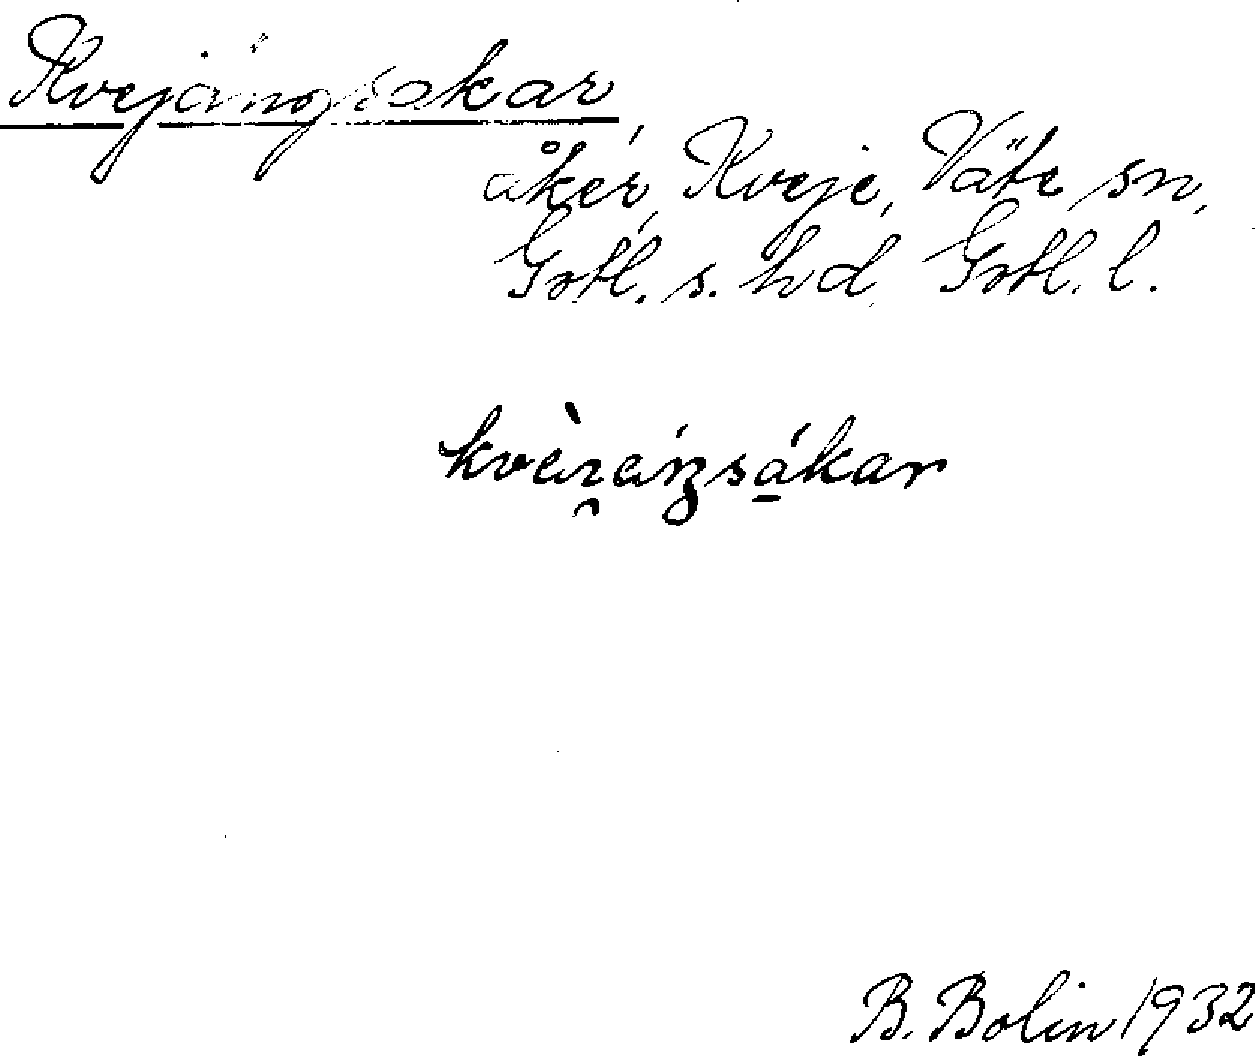 Kvejängsakar
åker, Kveje, Väte sn,
Gotl. s. hd, Gotl. l.
B. Bolin 1932